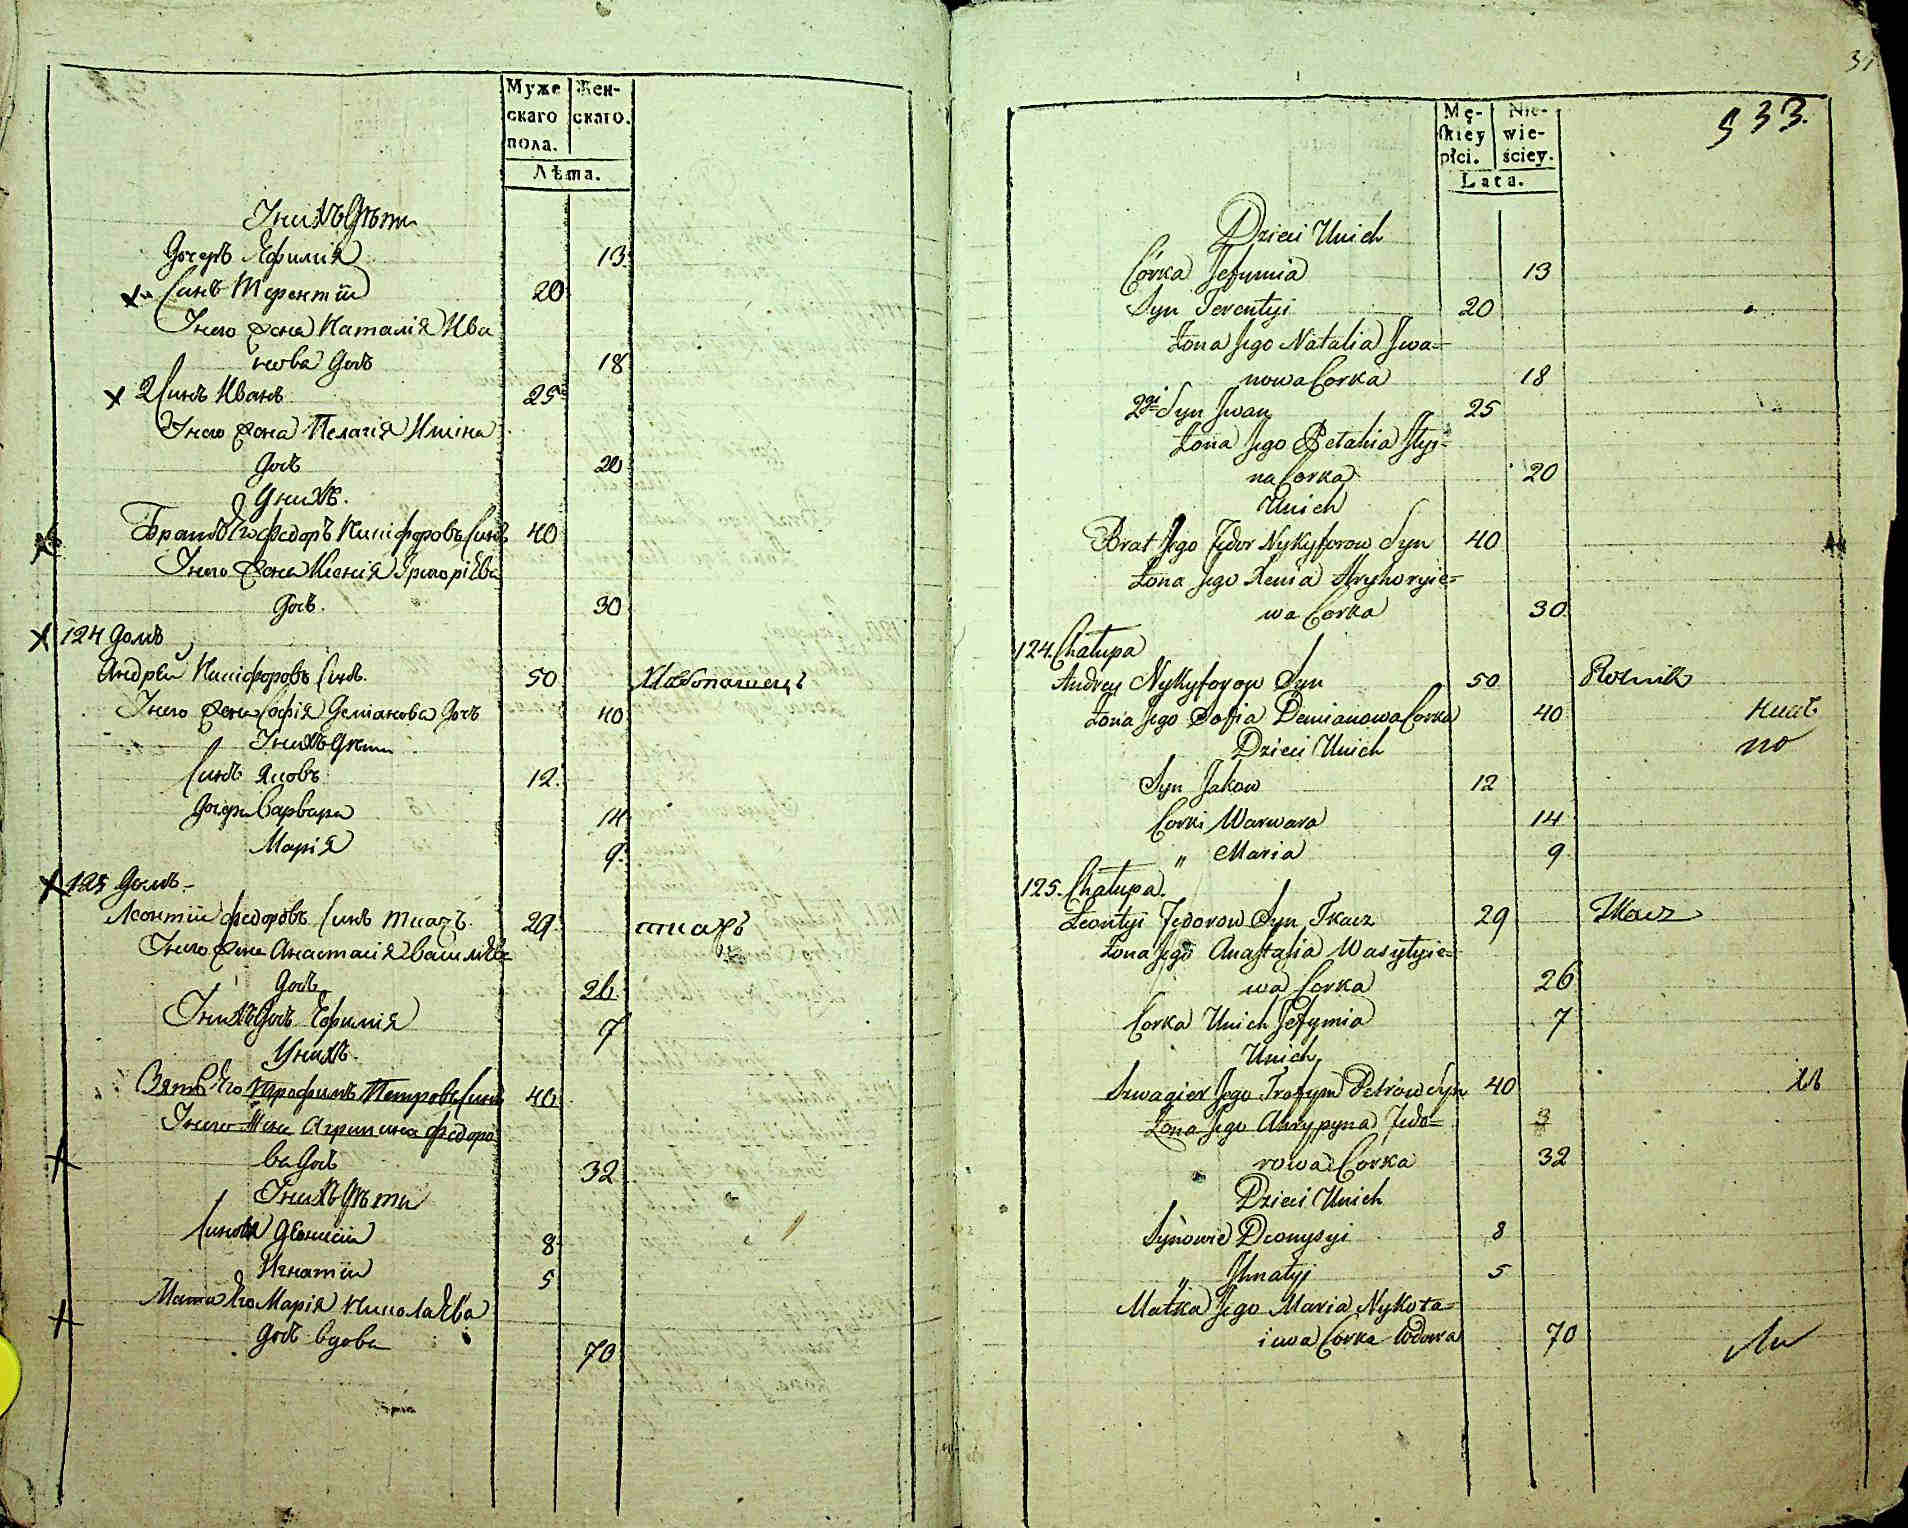 Муже
скаго
пола.
Жен-
скаго.
Лѣта.
У нихъ Дѣти
Дочерь Ефимія 13
Синъ Терентій 20
У него жена Наталія Ива
нова Дочь 18
2 Синъ Иванъ 25
У него жена Пелагія
Дочь 20
У нихъ.
Братъ Его Федоръ Никифоровъ Синъ 40
У него жена Ксенія Григоріева
Дочь. 30
124 Домъ
Андрей Никифоровъ Синъ. 50 Хлебопашецъ
У него жена Софія Деміанова Дочь 40
У нихъ Дѣти
Синъ Яковъ 12
Дочери Варвара 14
Марія 9
125 Домъ
Леонтій Федоровъ Синъ Ткачъ. 29 ткачъ
У него жена Анастасія Василіева
Дочь 26
У нихъ Дочь Ефимія 7
У нихъ.
Зять Его Трофимъ Петровъ Синъ 40
У него жена Агрипина Федоро
ва Дочь 32
У нихъ Дѣти
Синовя Діонисій 8
Игнатій 5
Мати Его Марія Николаева
Дочь вдова 70
533.
Mę-
skiey
płci.
Nie-
wie-
ściey.
Lata.
Dzieci Unich
Córka Jefymia 13
Syn Terentyi 20
Żona Jego Natalia Jwa=
nowa Corka 18
2gi Syn Jwan 25
Żona Jego Pelahia
na Corka 20
Unich
Brat Jego Fedor Nykyforow Syn 40
Żona Jego Xenia Hryhoryie=
wa Corka 30
124. Chałupa
Andrey Nykyforow Syn 50 Rolnik
Żona Jego Sofia Demianowa Corka 40
Dzieci Unich
по
Syn Jakow 12
Corki Warwara 14
" Maria 9
125. Chałupa.
Leontyi Fedorow Syn Tkacz 29 Tkacz
Żona Jego Anastasia Wasylyie=
wa Corka 26
Corka Unich Jefymia 7
Unich
Szwagier Jego Trofym Petrow Syn 40
Żona Jego Ahrypyna Fedo=
rowa Corka 32
Dzieci Unich
Synowie Dionysyi 8
" Jhnatyi 5
Matka Jego Maria Nykoła=
iwa Corka wdowa 70